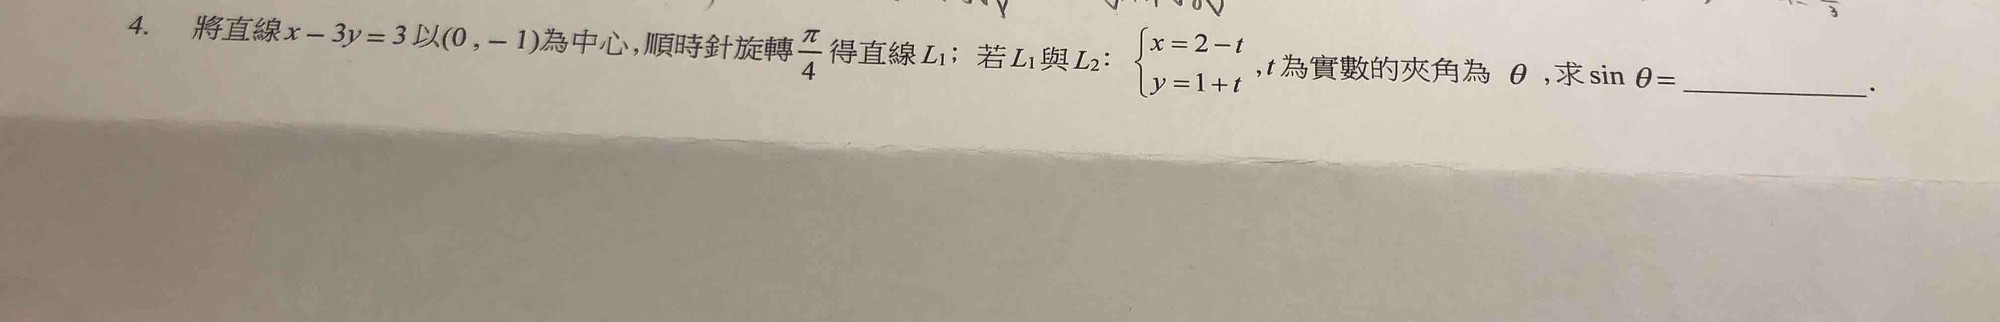 4. 將直線 x – 3y = 3 以(0 , – 1)為中心,順時針旋轉 π/4 得直線 L₁; 若 L₁與 L₂: { x = 2 – t y = 1 + t ,t 為實數的夾角為 θ ,求 sin θ = ________.